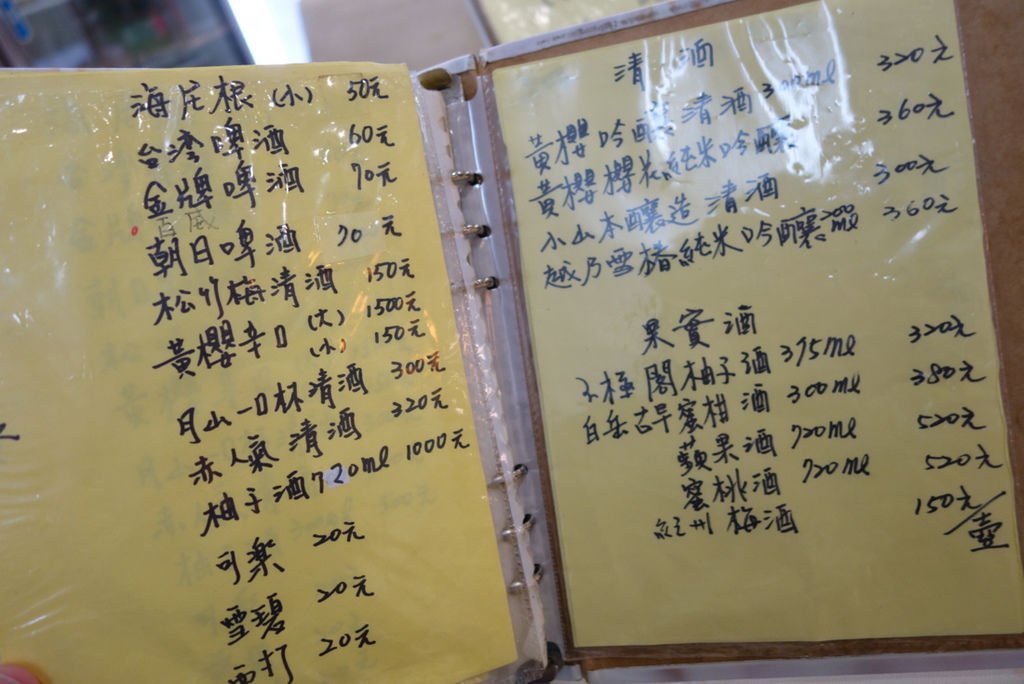 海尼根 (小) 50元
台湾啤酒 60元
金牌啤酒 70元
百威
朝日啤酒 70元
松竹梅清酒 150元
黃櫻辛口 (大) 1500元
(小) 150元
月山一口杯清酒 300元
赤人氣清酒 320元
柚子酒 720ml 1000元
可樂 20元
雪碧 20元
西打 20元
清酒
黃櫻吟釀清酒 300ml 320元
黃櫻櫻米純米吟釀 360元
小山本釀造清酒 300元
越乃雪椿純米吟釀 300ml 360元
果實酒
極閣柚子酒 375ml 320元
白岳古早蜜柑酒 300ml 380元
蘋果酒 720ml 520元
蜜桃酒 720ml 520元
紀州梅酒 150元/壺